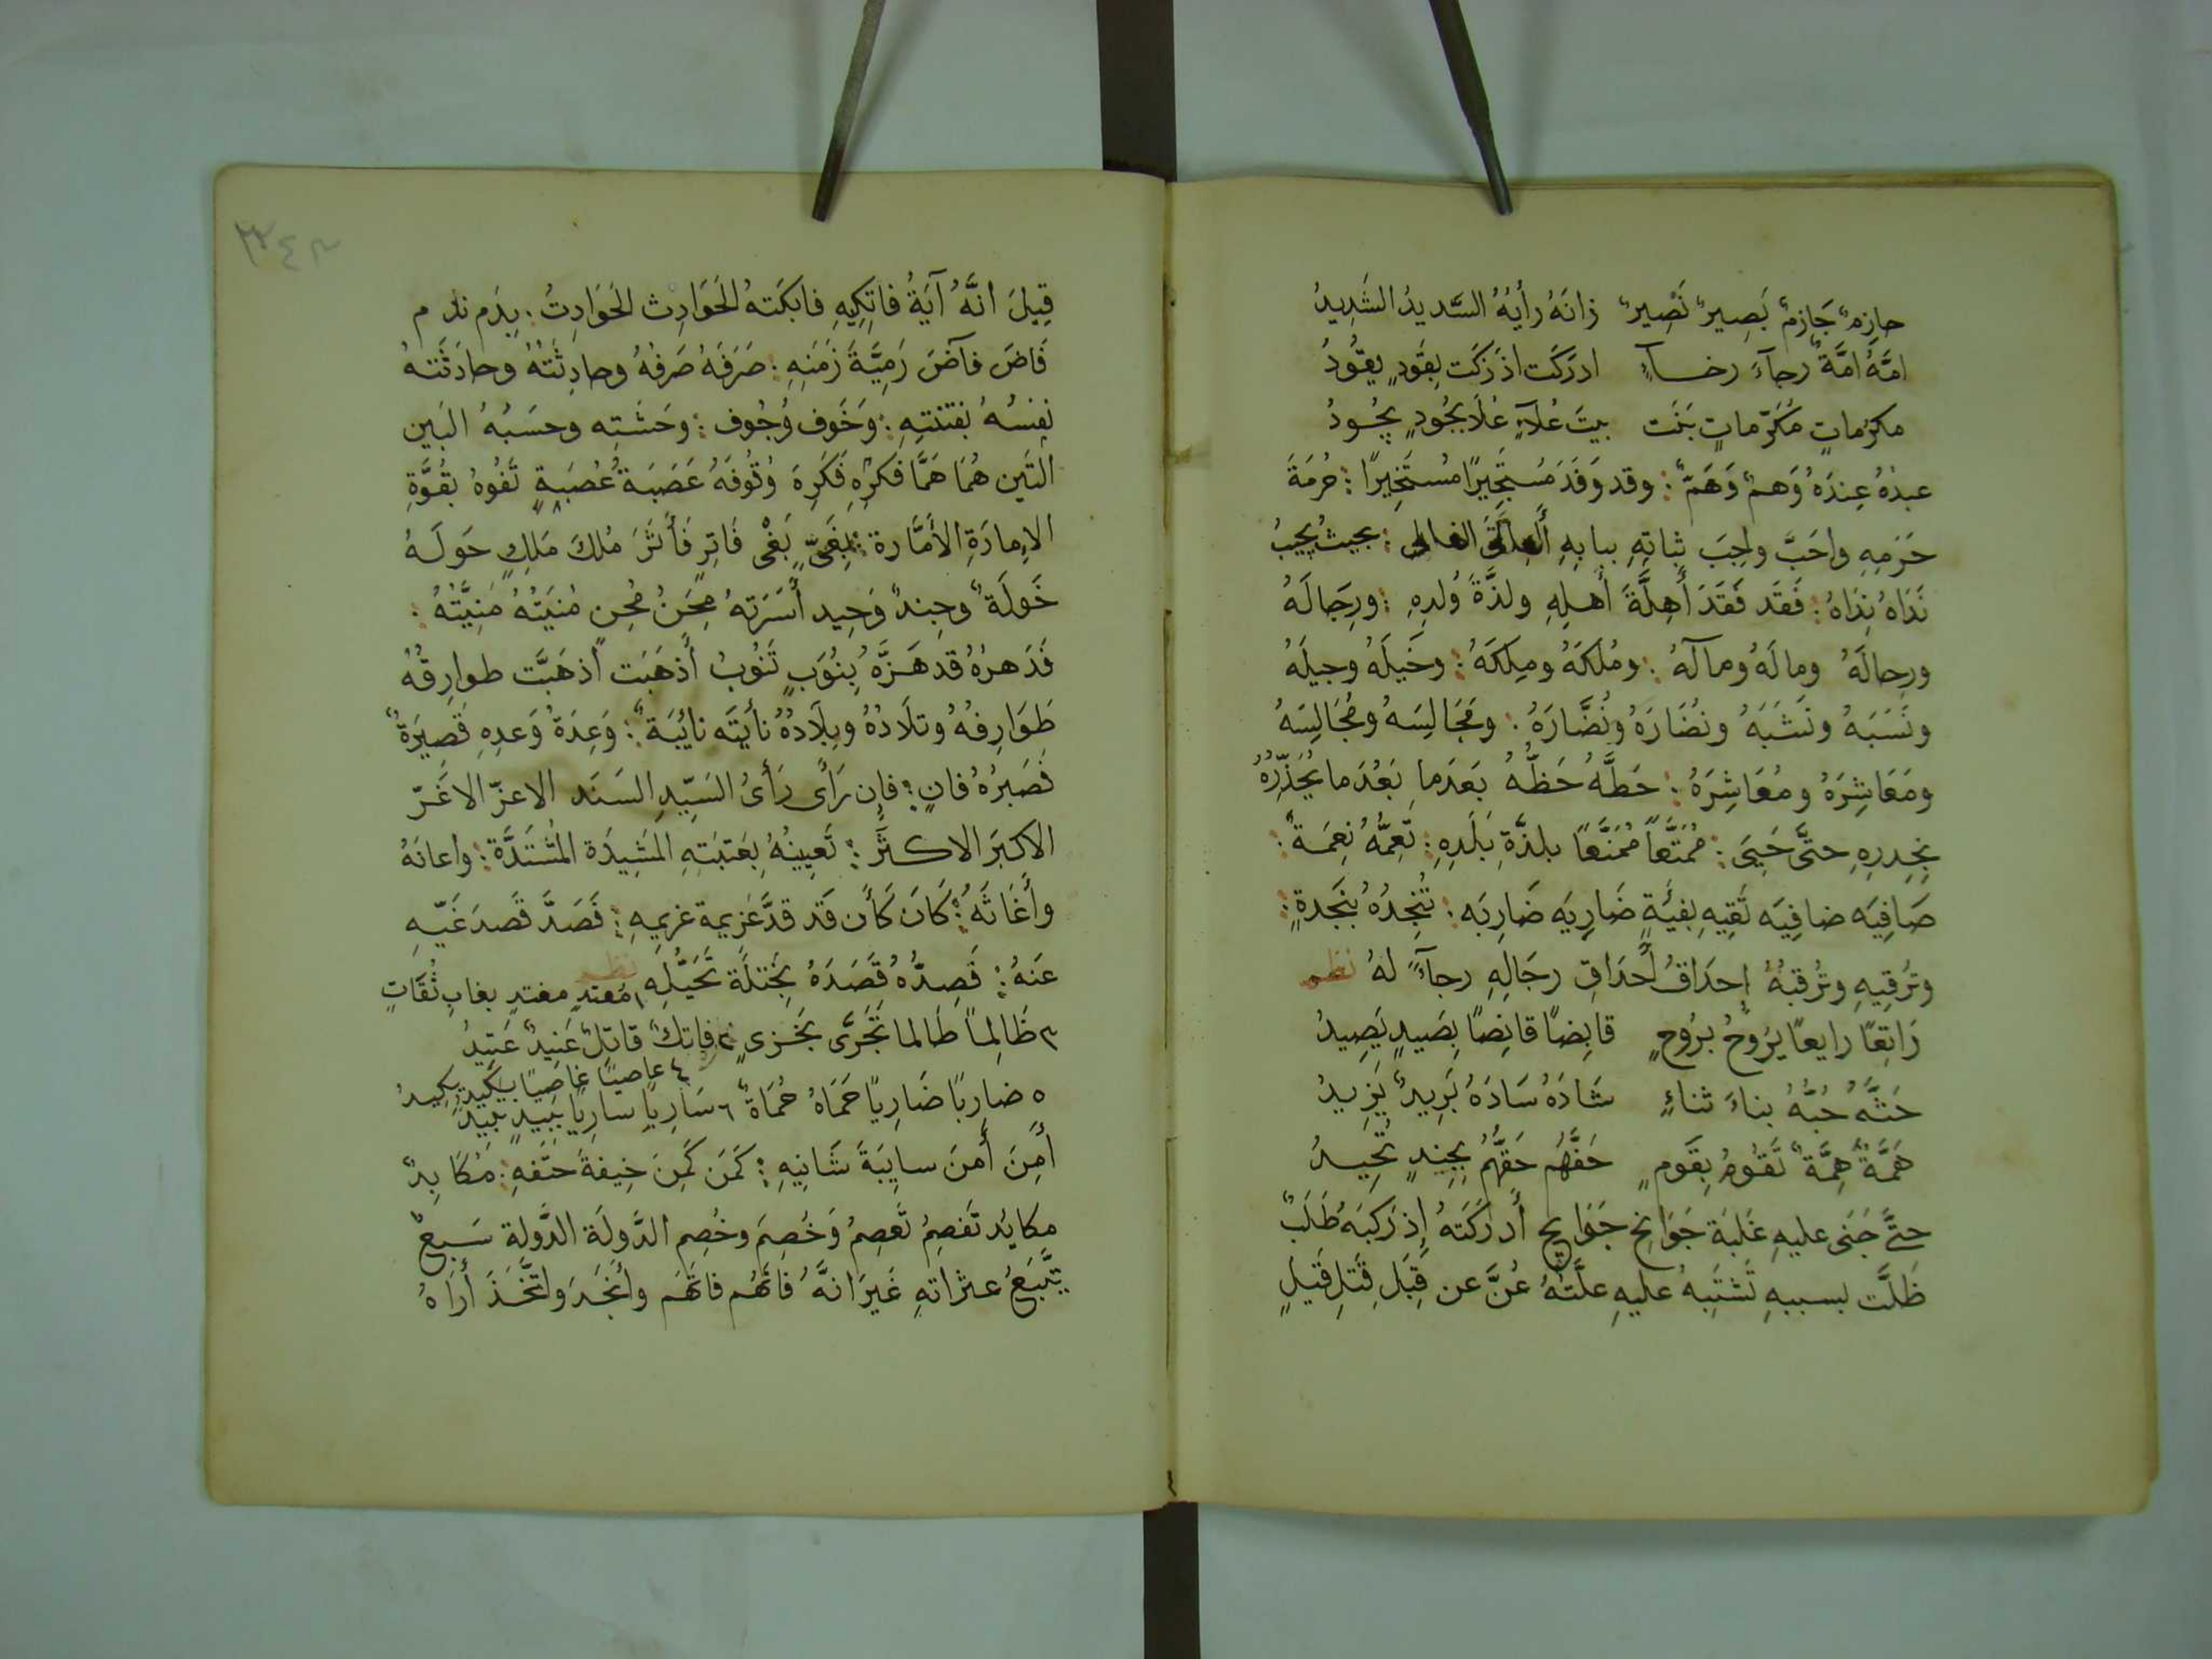 حازِمٌ جَازِمٌ بَصِيرٌ نَصِيرٌ زانَهُ رأيُهُ السَّديدُ الشَدِيدُ
امَّهُ امَّةٌ رجآءَ رخسآءٍ ادرَكَت اذ زَكَت بِقَودٍ يقُودُ
مكرُماتٍ مُكَرّماتٍ بَنَت بيتَ عُلآءٍ عُلَا بجُودٍ يجُودُ
عبدُهُ عِندَهُ وَهمٌ وَهَمٌّ : وقد وَفَدَ مُستَجِيرًا مُستَخِيرًا : حُرمَةَ
حَرَمِهِ واحَبَّ واجِبَ ثباتِهِ ببابِهِ العالى : بحيثُ يجيبُ
نَدَاهُ نِدَاهُ : فَقَد فَقَدَ أَهِلَّةَ أهلِهِ ولذَّةَ وُلدِهِ : ورِجَالَهُ
ورحالَهُ ومالَهُ ومآلَهُ : ومُلكَهُ ومِلكَهُ : وخَيلَهُ وجيلَهُ
ونَسَبَهُ ونَشَبَهُ ونُضَارَهُ ونُضَّارَهُ : ومَجَالِسَهُ ومُجَالِسَهُ
ومَعَاشِرَهُ ومُعَاشِرَهُ : حَطَّهُ حَظُّهُ بَعدَما بَعُدَ ما يُحَذِّرُهُ
بخِدرِهِ حتَّى حَيِىَ : مُمَتَّعًا مُمَنَّعًا بلذَّةِ بَلَدِهِ : تَعِمُّهُ نِعمَةٌ :
صَافِيَه ضافِيَه تَقِيهِ بفِئَةٍ ضَارِيَه ضَارِبَه : تُنجِدُهُ بنَجدةٍ :
وتُرقِيهِ وتُرقبُهُ إحدَاقُ أحدَاقِ رجَالِهِ رجآءً لهُ نظم
رَاتِعًا رايعًا يَرُوحُ برُوحٍ قابِضًا قانِصًا بِصَيدٍ يَصِيدُ
حَثَّهُ حُبُّهُ بناءَ ثناءٍ شَادَهُ سَادَهُ بَرِيدٌ يَزِيدُ
هَمَّةٌ هِمَّةٌ تَقُومُ بِقَومٍ حَفَّهُم حَقُّهُم بجِندٍ تُحِيدُ
حتَّى جَنَى عليهِ غَلبَة جَوَانِح جَوَايِح أَدرَكَتهُ إِذ رَكِبَهُ طَلَبٌ
ظَلَّت بسببهِ تَشتَبِهُ عليهِ علَّتهُ عُنَّ عن قَبَلِ قَتلِ قَتيلٍ
قِيلَ انَّهُ آيَةُ فاتِكِيهِ فابكَتهُ الحَوَادِث الحَوَادِثُ : بِدَم نادم
فَاضَ فآضَ رَمِيَّةَ زَمَنِهِ : صَرَفَهُ صَرفُهُ وحادِثَتهُ وحادَثَتهُ
نفسُهُ بفتنتِهِ : وَخَوف وُجُوف : وحَشَتِه وحسَبُهُ البَين
التَين هُمَا هَمَّا فكرِهِ فَكَرِهَ وُقُوفَهُ عَصَبَة عُصبَةٍ تَفُوهُ بقُوَّةِ
الاِمارَةِ الأَمَّارة : بَغْى فَاتِرٍ فَأَثَرَ مُلكَ مَلِكٍ حَولَهُ
خَولَةٌ وجِندٌ وَحِيد أَسَرَتهُ مِحَنُ مُحِن مُنيَتُهُ مَنِيَّتُهُ :
فَدَهرُهُ قد هَزَّهُ بِنُوَبٍ تَنُوبُ أَذهَبَت اذ هَبَّت طوارِقُهُ
طَوَارِفهُ وتلَادُهُ وبِلَادُهُ نأَيَتَه نائِبَةٌ : وَعِدَةُ وَعدِهِ قَصِيرَةٌ
فَصَبرُهُ فانٍ : فإن رَأى رَأىُ السَيِّدِ السَنَد الاعزّ الاغَرّ
الاكبَر الاكثَر : تَعيِينُهُ بِعَتبَتِهِ المَشِيدَة المُشتَدَّة : واعانَهُ
وأَغَاثَهُ : كَانَ كَأَن قَد قدَّ عَزيمة غريمِهِ : فَصَدَّ قَصدَ غَيّهِ
عَنهُ : قَصِدُّه قَصَدَهُ بخَتلَة تَحَيُّلِهِ نظم ١ مُعتدٍ مغتدٍ بغابِ ثُقَاتٍ
٣ ظَالِمًا طَالما تَجَرَّى بخَزىٍ ٢ فاتكٌ قاتِلٌ عَنِيدٌ عَتِيدُ
٤ عاصيًا غاصبًا بِكَيدٍ يكِيدُ
٥ ضارِبًا ضَارِيًا حَمَاهُ حُمَاةٌ ٦ سَارِيًا ساربًا ببِيدٍ يَبِيدُ
أَمِنَ أَمنَ سايبَةَ شَانِيهِ : كَمَن كَمِنَ خِيفةَ حتفِهِ : مُكَابِدٌ
مكايُد تَفصِمُ تَعصِمُ وَخُصِمَ وخُصِم الدَّولَة الدَّولة سَبعٌ
يتَّبِعُ عثراتهِ غَيرَ انَّهُ فاتَهُم فاتَّهَم وأَنجَدَ واتَّخَذَ أرَاهُ